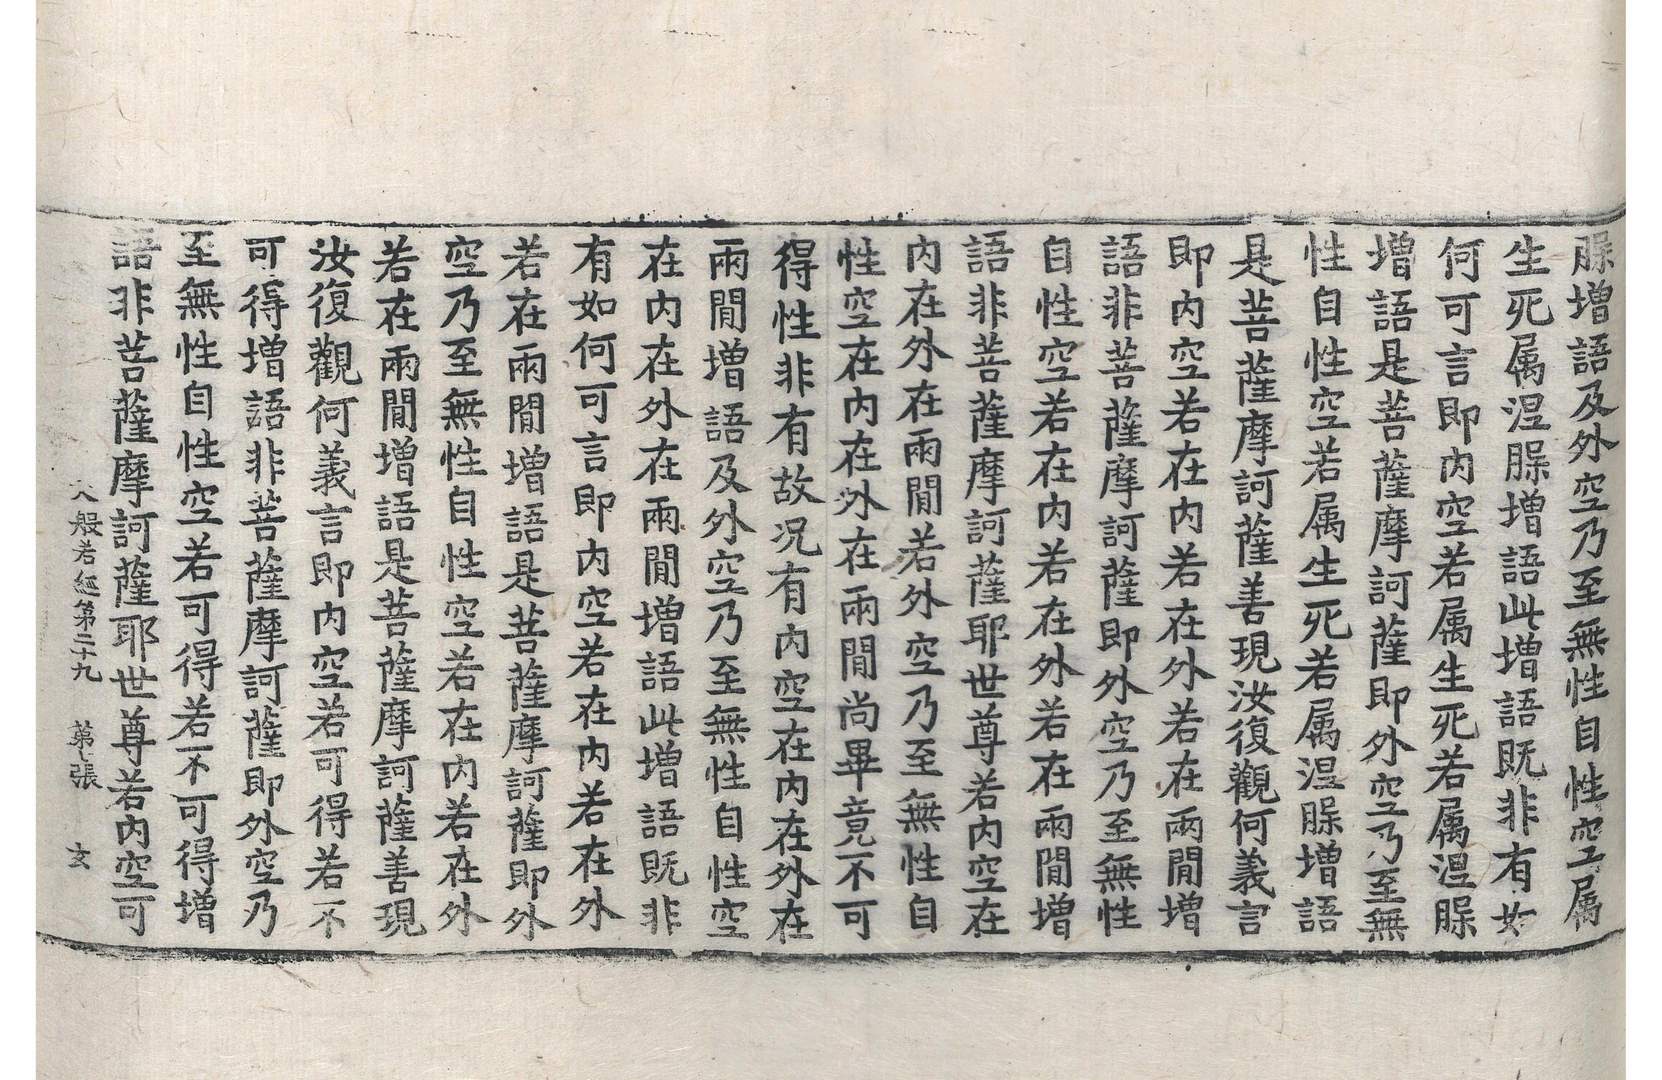 脲增語及外空乃至無性自性空属
生死属涅脲增語此增語既非有如
何可言即内空若属生死若属涅脲
增語是菩薩摩訶薩即外空乃至無
性自性空若属生死若属涅脲增語
是菩薩摩訶薩善現汝復觀何義言
即内空若在内若在外若在兩閒增
語非菩薩摩訶薩即外空乃至無性
自性空若在内若在外若在兩閒增
語非菩薩摩訶薩耶世尊若内空在
内在外在兩閒若外空乃至無性自
性空在内在外在兩閒尚畢竟不可
得性非有故况有内空在内在外在
兩閒增語及外空乃至無性自性空
在内在外在兩閒增語此增語既非
有如何可言即内空若在内若在外
若在兩閒增語是菩薩摩訶薩即外
空乃至無性自性空若在内若在外
若在兩閒增語是菩薩摩訶薩善現
汝復觀何義言即内空若可得若不
可得增語非菩薩摩訶薩即外空乃
至無性自性空若可得若不可得增
語非菩薩摩訶薩耶世尊若内空可
大般若經第二十九 第七張 文